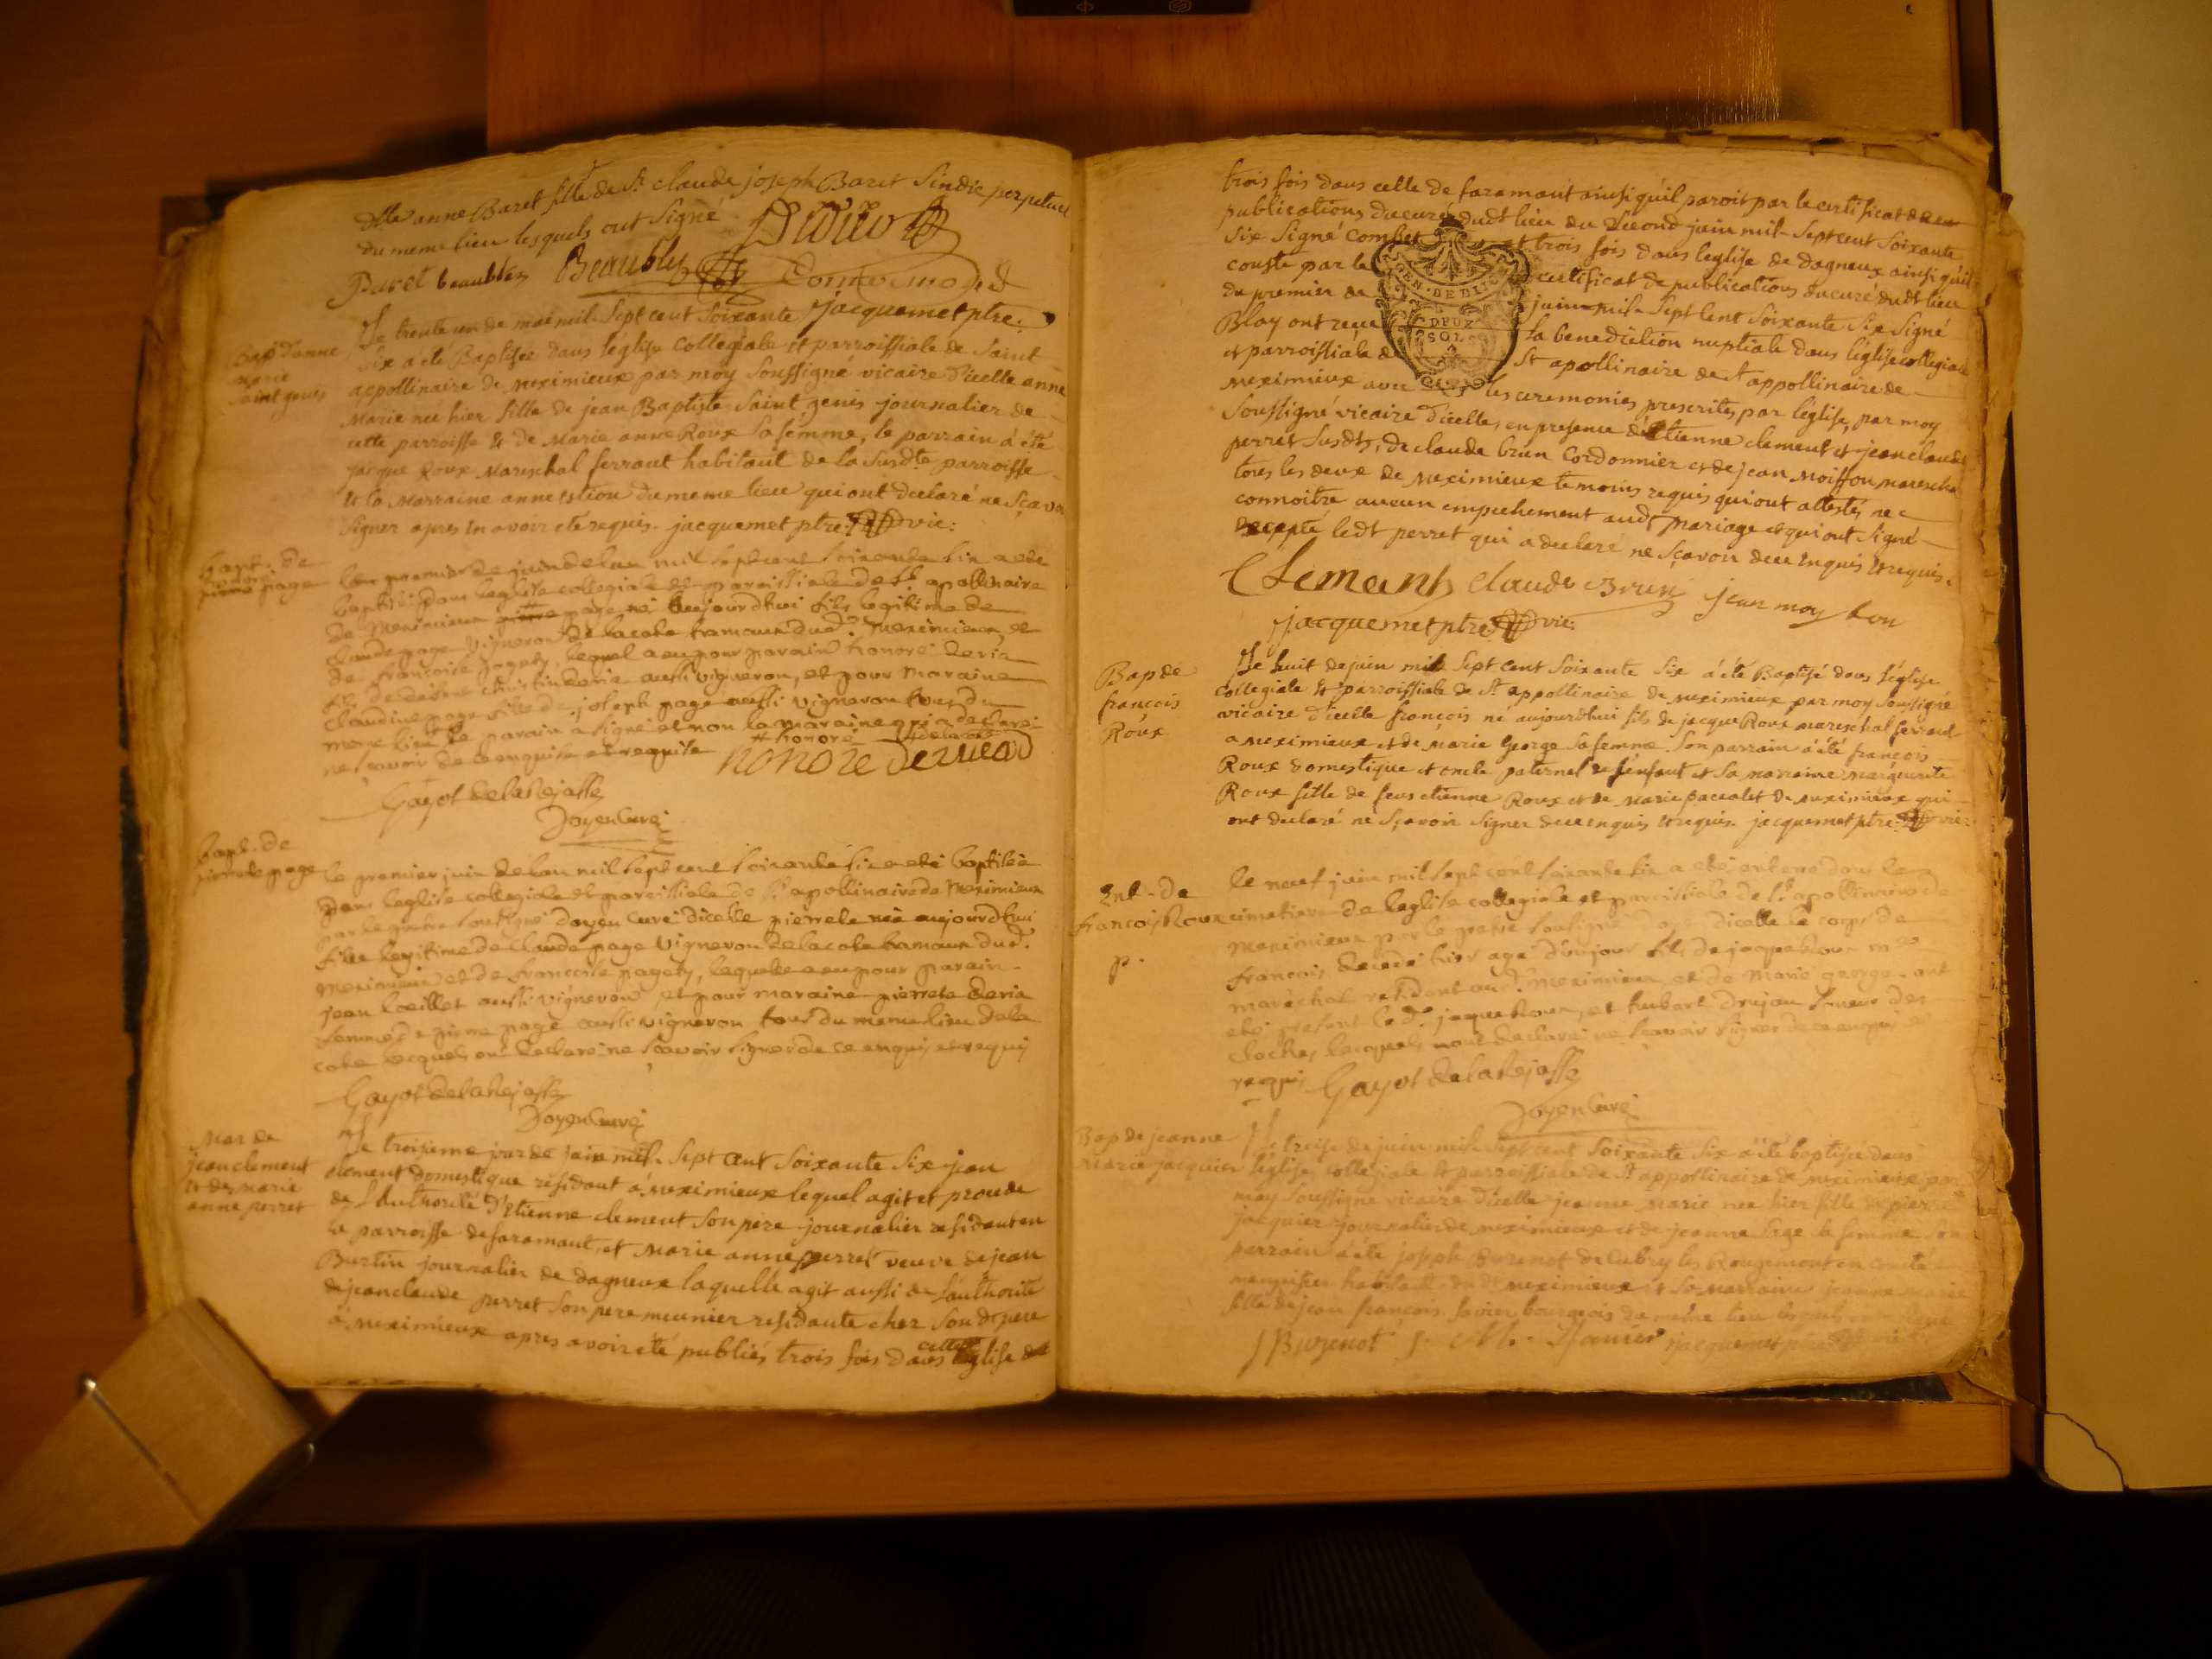 dlle anne Baret fille de Sr claude joseph Baret Sindic perpetuel
du meme lieu lesquels ont Signé
Baret beaublez Beaublez
jacquemet ptre.
Bap d'anne
marie
Saint genis
Le trente un de mai mil Sept cent Soixante
Six a été Baptisée dans leglise Collegiale et parroissiale de Saint
appollinaire de meximieux par moy Soussigné vicaire d'icelle anne
Marie née hier fille de jean Baptiste Saint genis journalier de
cette parroisse & de Marie anne Roux Sa femme, le parrain à été
jacque Roux Mareschal ferrant habitant de la Susdte parroisse
et la Marraine anne du meme lieu qui ont declaré ne Sçavoir
Signer apres en avoir eté requis. jacquemet ptre vic:
bapt. de
honoré page
le premier de juin de lan mil sept cent soixante six a eté
baptisé dans leglise collegiale et paroissiale de st apollinaire
de Meximieux page né aujourdhui fils legitime de
claude page vigneron de la cote hameau dud. Meximieux, et
de francoise pagety, lequel a eu pour parain honoré deria
fils de aussi vigneron, et pour maraine
claudine page fille de joseph page aussi vigneron tous du
meme lieu le parain a signé et non la maraine qui a declaré
ne scavoir de ce enquise et requise
# honoré
honore deriéa
Gayot de la Rejasse
Doyen Curé
bapt. de
pierrete page
le premier juin de lan mil sept cent soixante six a eté baptisée
dans leglise collegiale et paroissiale de st apollinaire de Meximieux
par le pretre soussigné doyen curé dicelle pierrete née aujourdhui
fille legitime de claude page vigneron de la cote hameau dud.
Meximieux et de francoise pagety, laquelle a eu pour parain
jean loeillet aussi vigneron et pour maraine pierrete deria
femme de pierre page aussi vigneron tous du meme lieu de la
cote lesquels ont declaré ne scavoir signer de ce enquis et requis
Gayot de la Rejasse
Doyen Curé
Mar de
jean clement
et de marie
anne perret
Le troisieme jour de juin mil Sept cent Soixante Six jean
clement domestique résidant à meximieux lequel agit et procede
de l'authorité d'Etienne clement Son père journalier residant en
la parroisse de faramant, et Marie anne perret veuve de jean
Burtin journalier de dagneux laquelle agit aussi de l'authorité
de jean claude perret Son pere meunier residante chez Son dt pere
à meximieux apres avoir été publiés trois fois dans cette eglise
trois fois dans celle de faramant ainsi qu'il paroit par le certificat de
publications du curé dudt lieu du Second juin mil Sept cent Soixante
Six Signé Combet et trois fois dans leglise de dagneux ainsi qu'il
conste par le certificat de publications du curé dudt lieu
du premier de juin mil Sept Cent Soixante Six Signé
Blay ont reçu la benediction nuptiale dans l'église collegiale
et parroissiale de St apollinaire de St appollinaire de
meximieux avec les ceremonies prescrites par l'église, par moy
GEN. DE
DEUX
SOLS
Soussigné vicaire d'icelle, en presence d'Etienne clement et jean claude
perret Susdts, de claude brun Cordonnier et de jean moiffon mareschal
tous les deux de meximieux temoins requis qui ont attestés ne
connoitre aucun empechement audt mariage et qui ont Signé
excepté ledt perret qui a declaré ne Sçavoir de ce enquis & requis.
Clemant Claude Brun jean moy fon
jacquemet ptre vic.
Bap de
françois
Roux
Le huit de juin mil Sept cent Soixante Six à été Baptisé dans l'église
collegiale & parroissiale de St appollinaire de meximieux par moy Soussigné
vicaire d'icelle françois né aujourdhui fils de jacque Roux mareschal ferrant
a meximieux et de Marie George Sa femme Son parrain à été françois
Roux domestique et oncle paternel de l'enfant et Sa marraine marguerite
Roux fille de feus etienne Roux et de Marie pacalet de meximieux qui
ont declaré ne Sçavoir Signer de ce enquis & requis. jacquemet ptre vic.
Ent. de
francois Roux
p.
le neuf juin mil sept cent soixante six a eté enterré dans le
cimetiere de leglise collegiale et paroissiale de st apollinaire de
Meximieux par le pretre soussigné doyen dicelle le corps de
francois decedé hier agé d'un jour fils de jacque Roux me
maréchal residant aud. Meximieux et de Marie george. ont
eté presents led. jaque Roux, et hubert drujon soneur des
cloches lesquels ont declaré ne scavoir signer de ce enquis et
requis Gayot de la Rejasse
Doyen Curé
Bap de jeanne
Marie jacquier
Le treise de juin mil Sept cent Soixante Six à été baptisée dans
l'église collegiale & parroissiale de St appollinaire de meximieux par
moy Soussigné vicaire d'icelle jeanne Marie née hier fille de pierre
jacquier journalier de meximieux et de jeanne Sage Sa femme Son
parrain à été joseph Buzenot de Cubry les Rougemont en comté
habitant de meximieux et Sa marraine jeanne marie
fille de jean françois Savier bourgeois du même lieu
J Buzenot jacquemet ptre